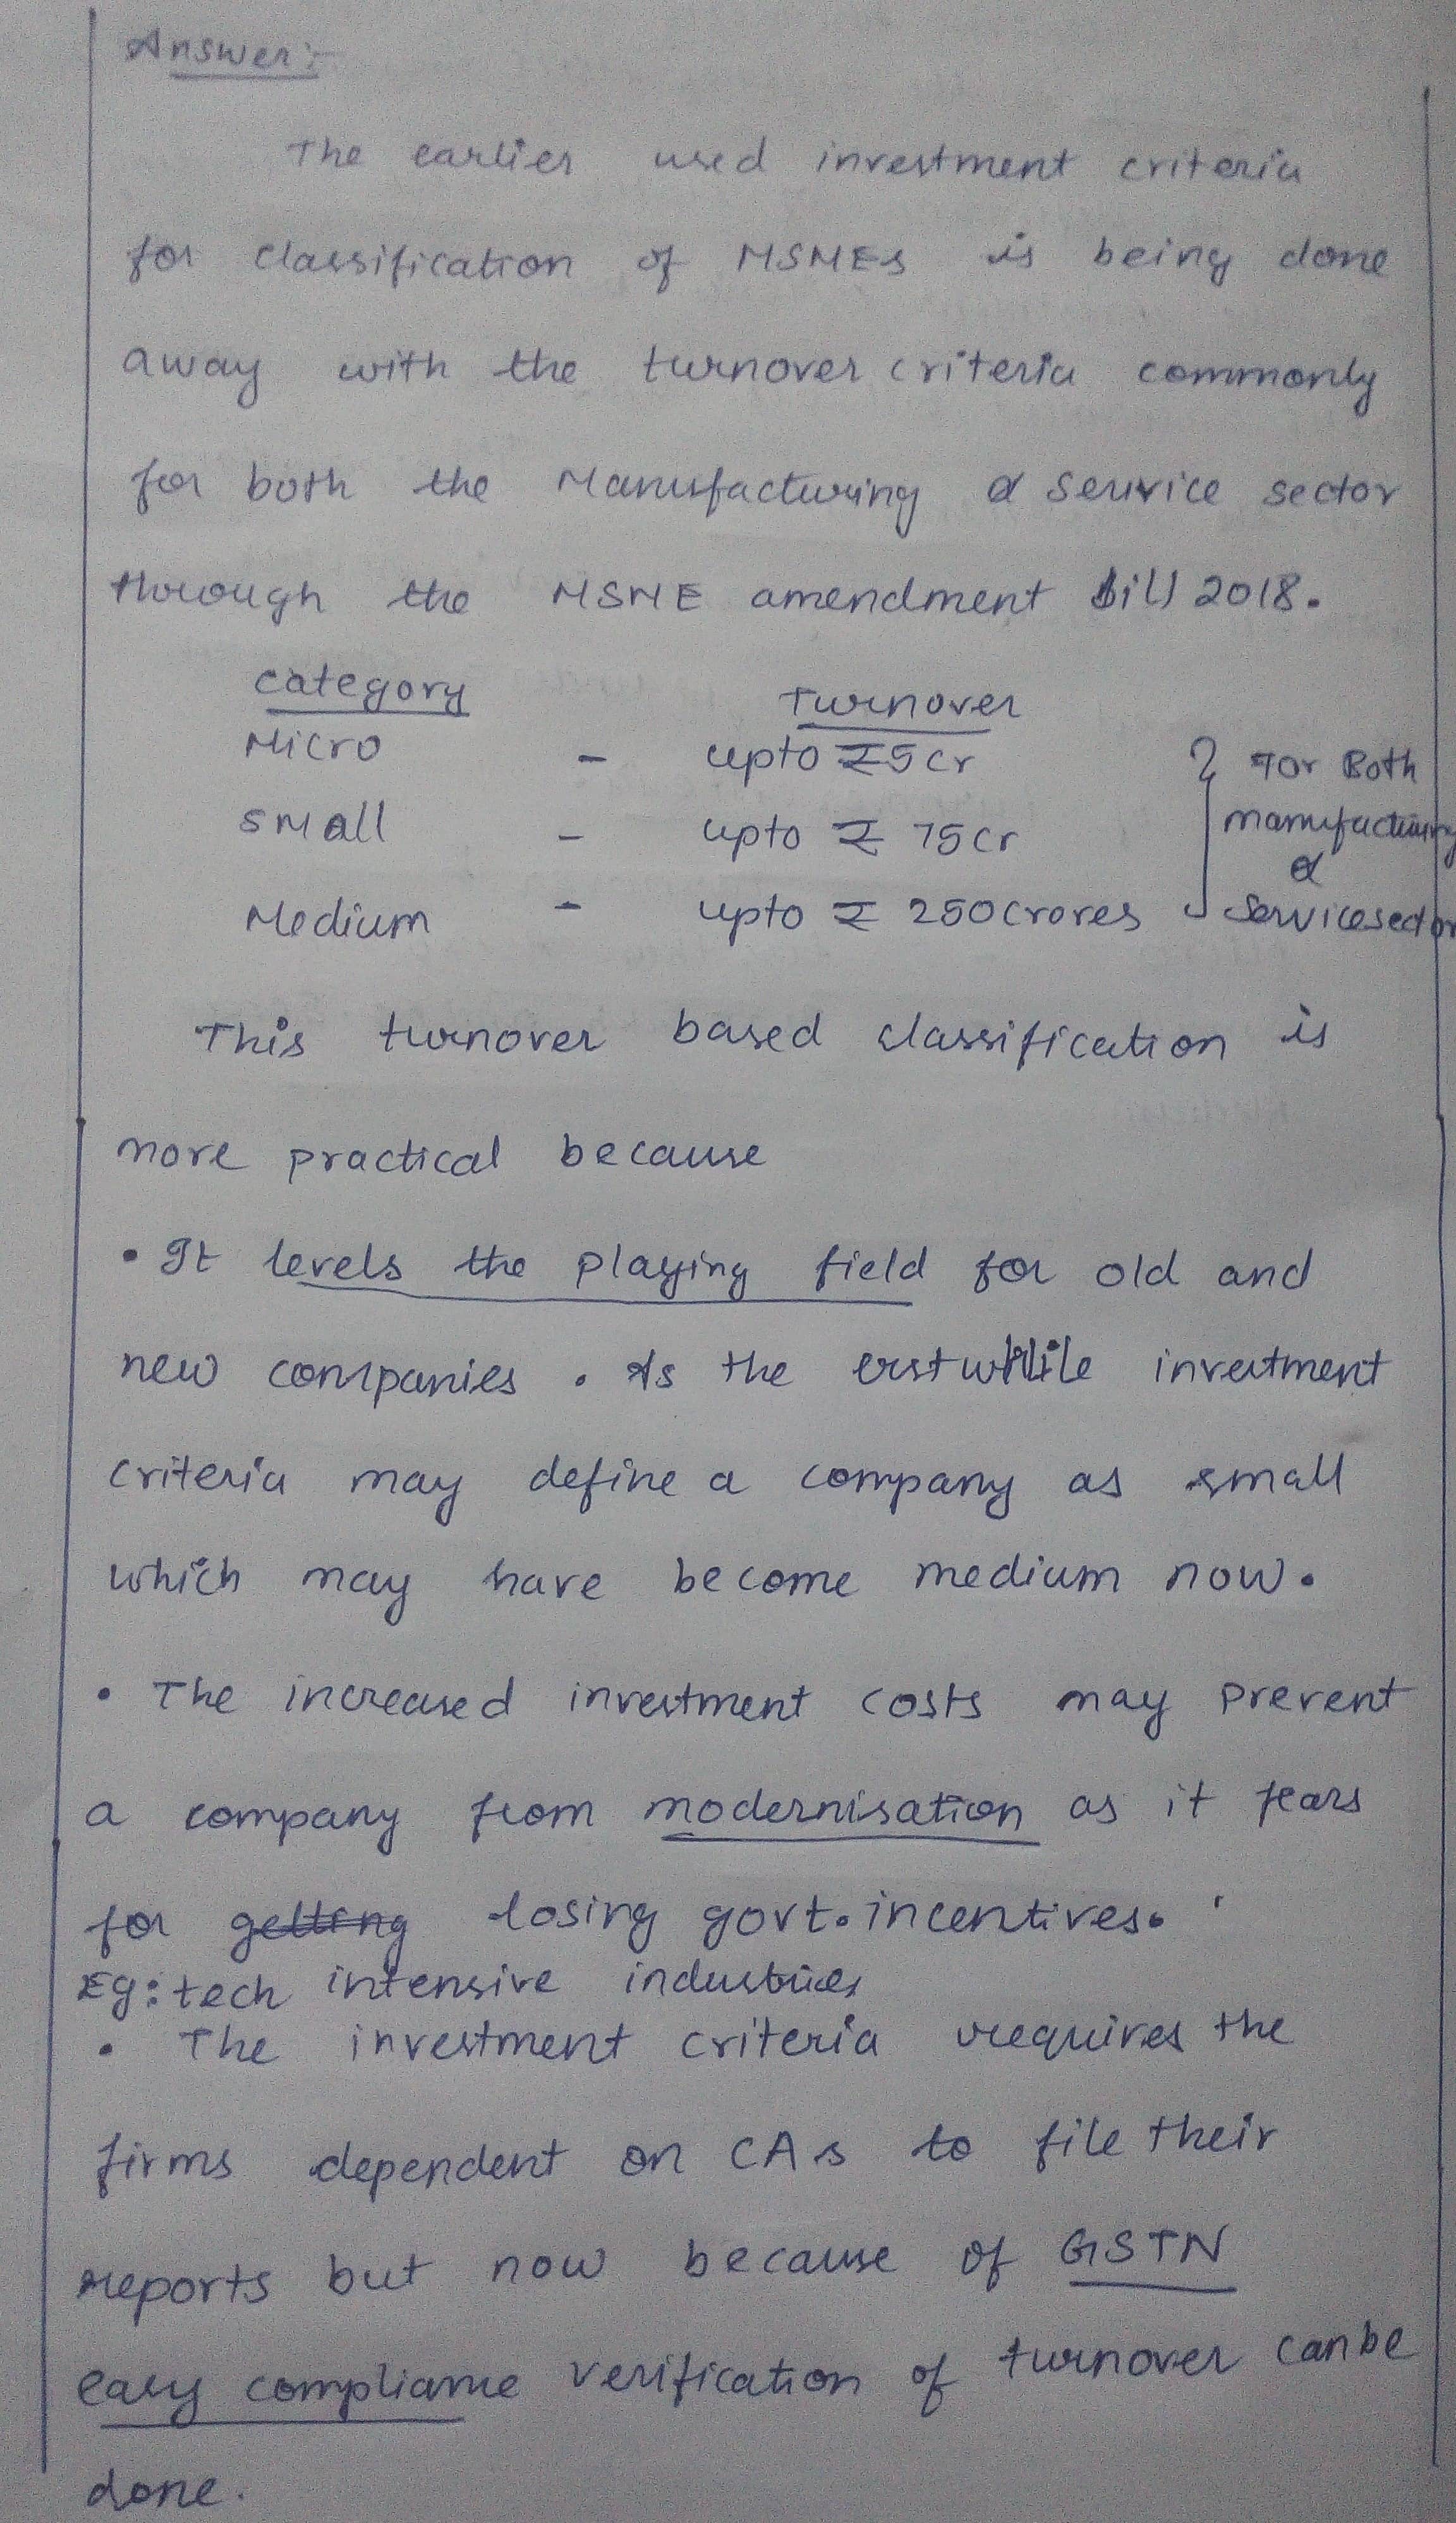 Answer:-
The earlier used investment criteria
for classification of MSMEs is being done
away with the turnover criteria commonly
for both the Manufacturing & Service sector
through the MSME amendment bill 2018.
Category Turnover
Micro - upto ₹5cr
Small - upto ₹ 75cr
Medium - upto ₹ 250crores
} For Both
manufacturing
&
Service sector
This turnover based classification is
more practical because
• It levels the playing field for old and
new companies. As the erstwhile investment
criteria may define a company as small
which may have become medium now.
• The increased investment costs may prevent
a company from modernisation as it fears
for getting losing govt. incentives.
Eg: tech intensive industries
• The investment criteria requires the
firms dependent on CAs to file their
reports but now because of GSTN
easy compliance verification of turnover can be
done.